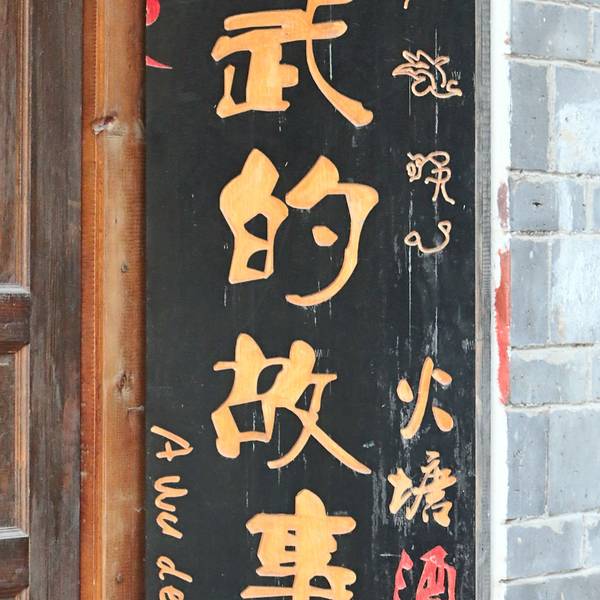 武的故事
火塘酒
A Wu de